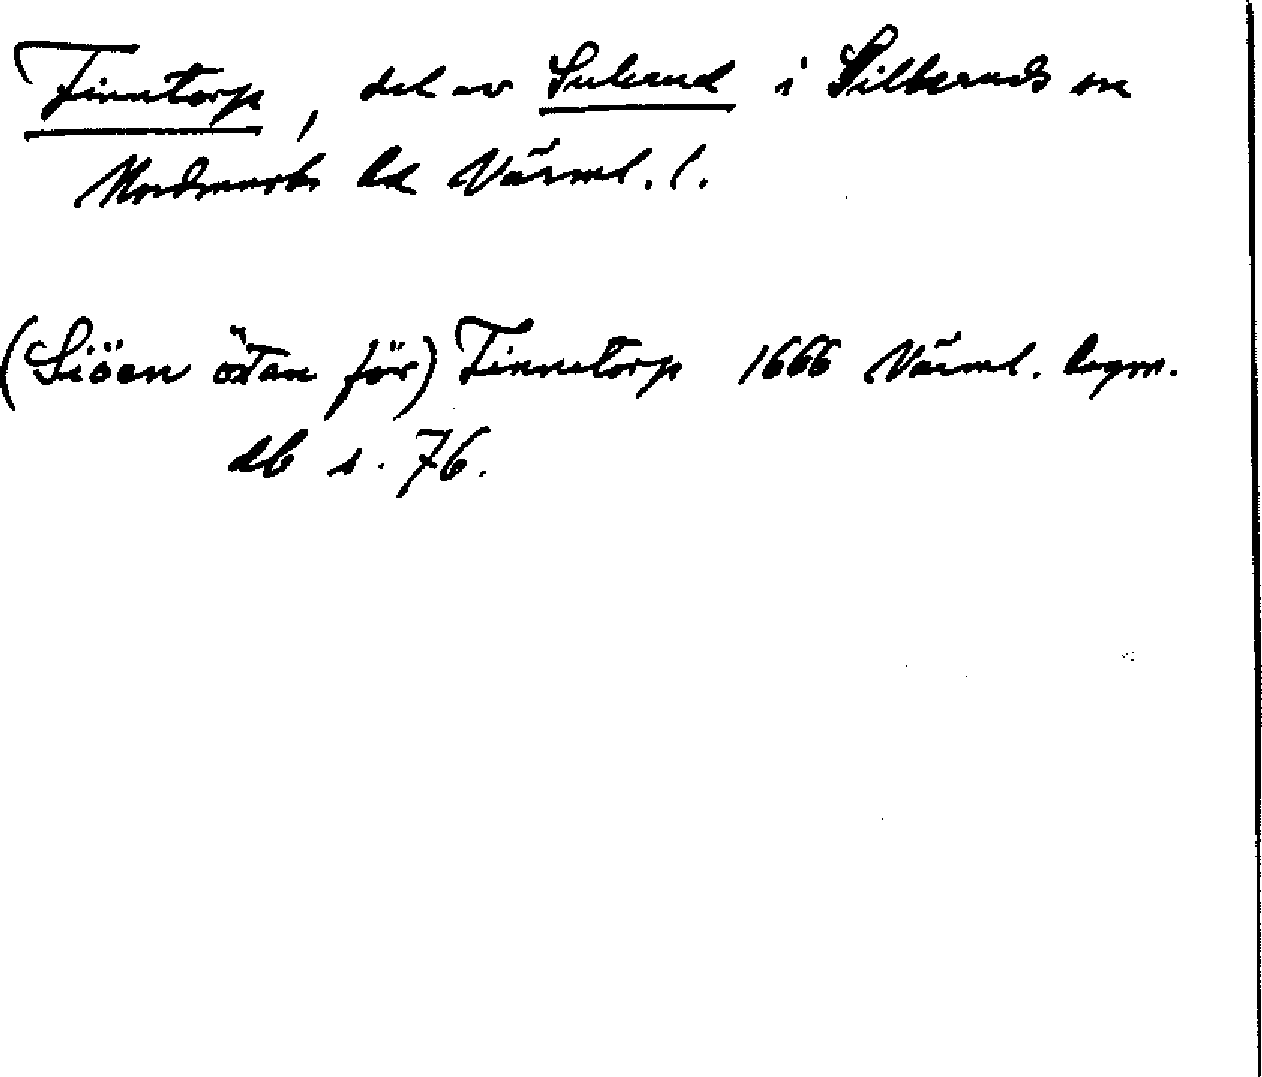 Finntorp, del av Sulerud i Sillbodals sn
Nordmarks hd Värml. l.
(Siöen östan för) Finnetorp 1666 Värml. lagm.
db s. 76.